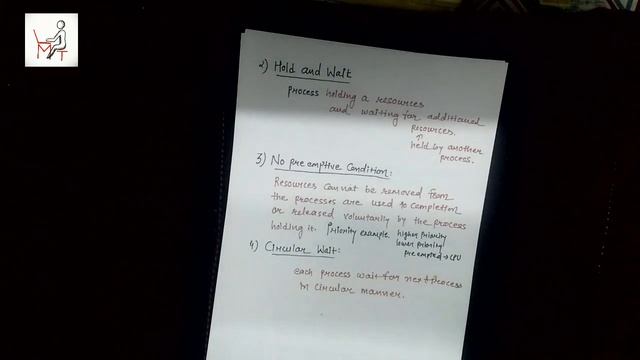 2) Hold and Wait
process holding a resources
and waiting for additional
resources.
↑
held by another
process.
3) No preemptive Condition:
Resources cannot be removed from
the processes are used to completion
or released voluntarily by the process
holding it. Priority example. higher priority
lower priority
preempted → CPU
4) Circular Wait:
each process wait for next process
in circular manner.